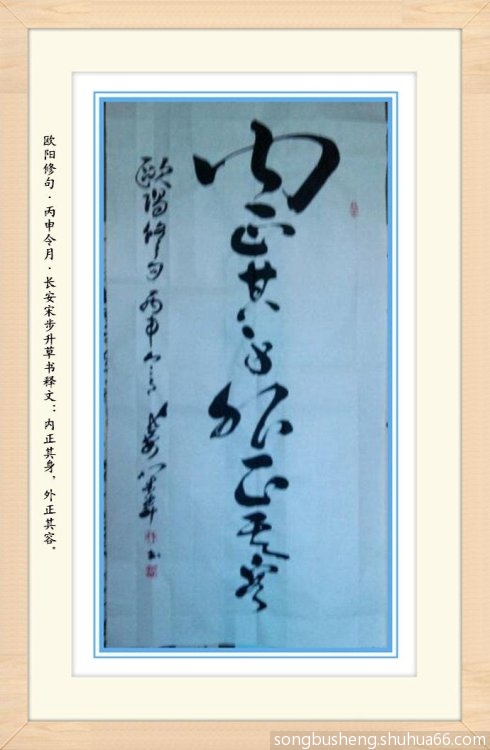 内正其身外正其容
歐陽修句丙申令月长安宋步升书
欧阳修句·丙申令月·长安宋步升草书释文：内正其身，外正其容。
songbusheng.shuhua66.com